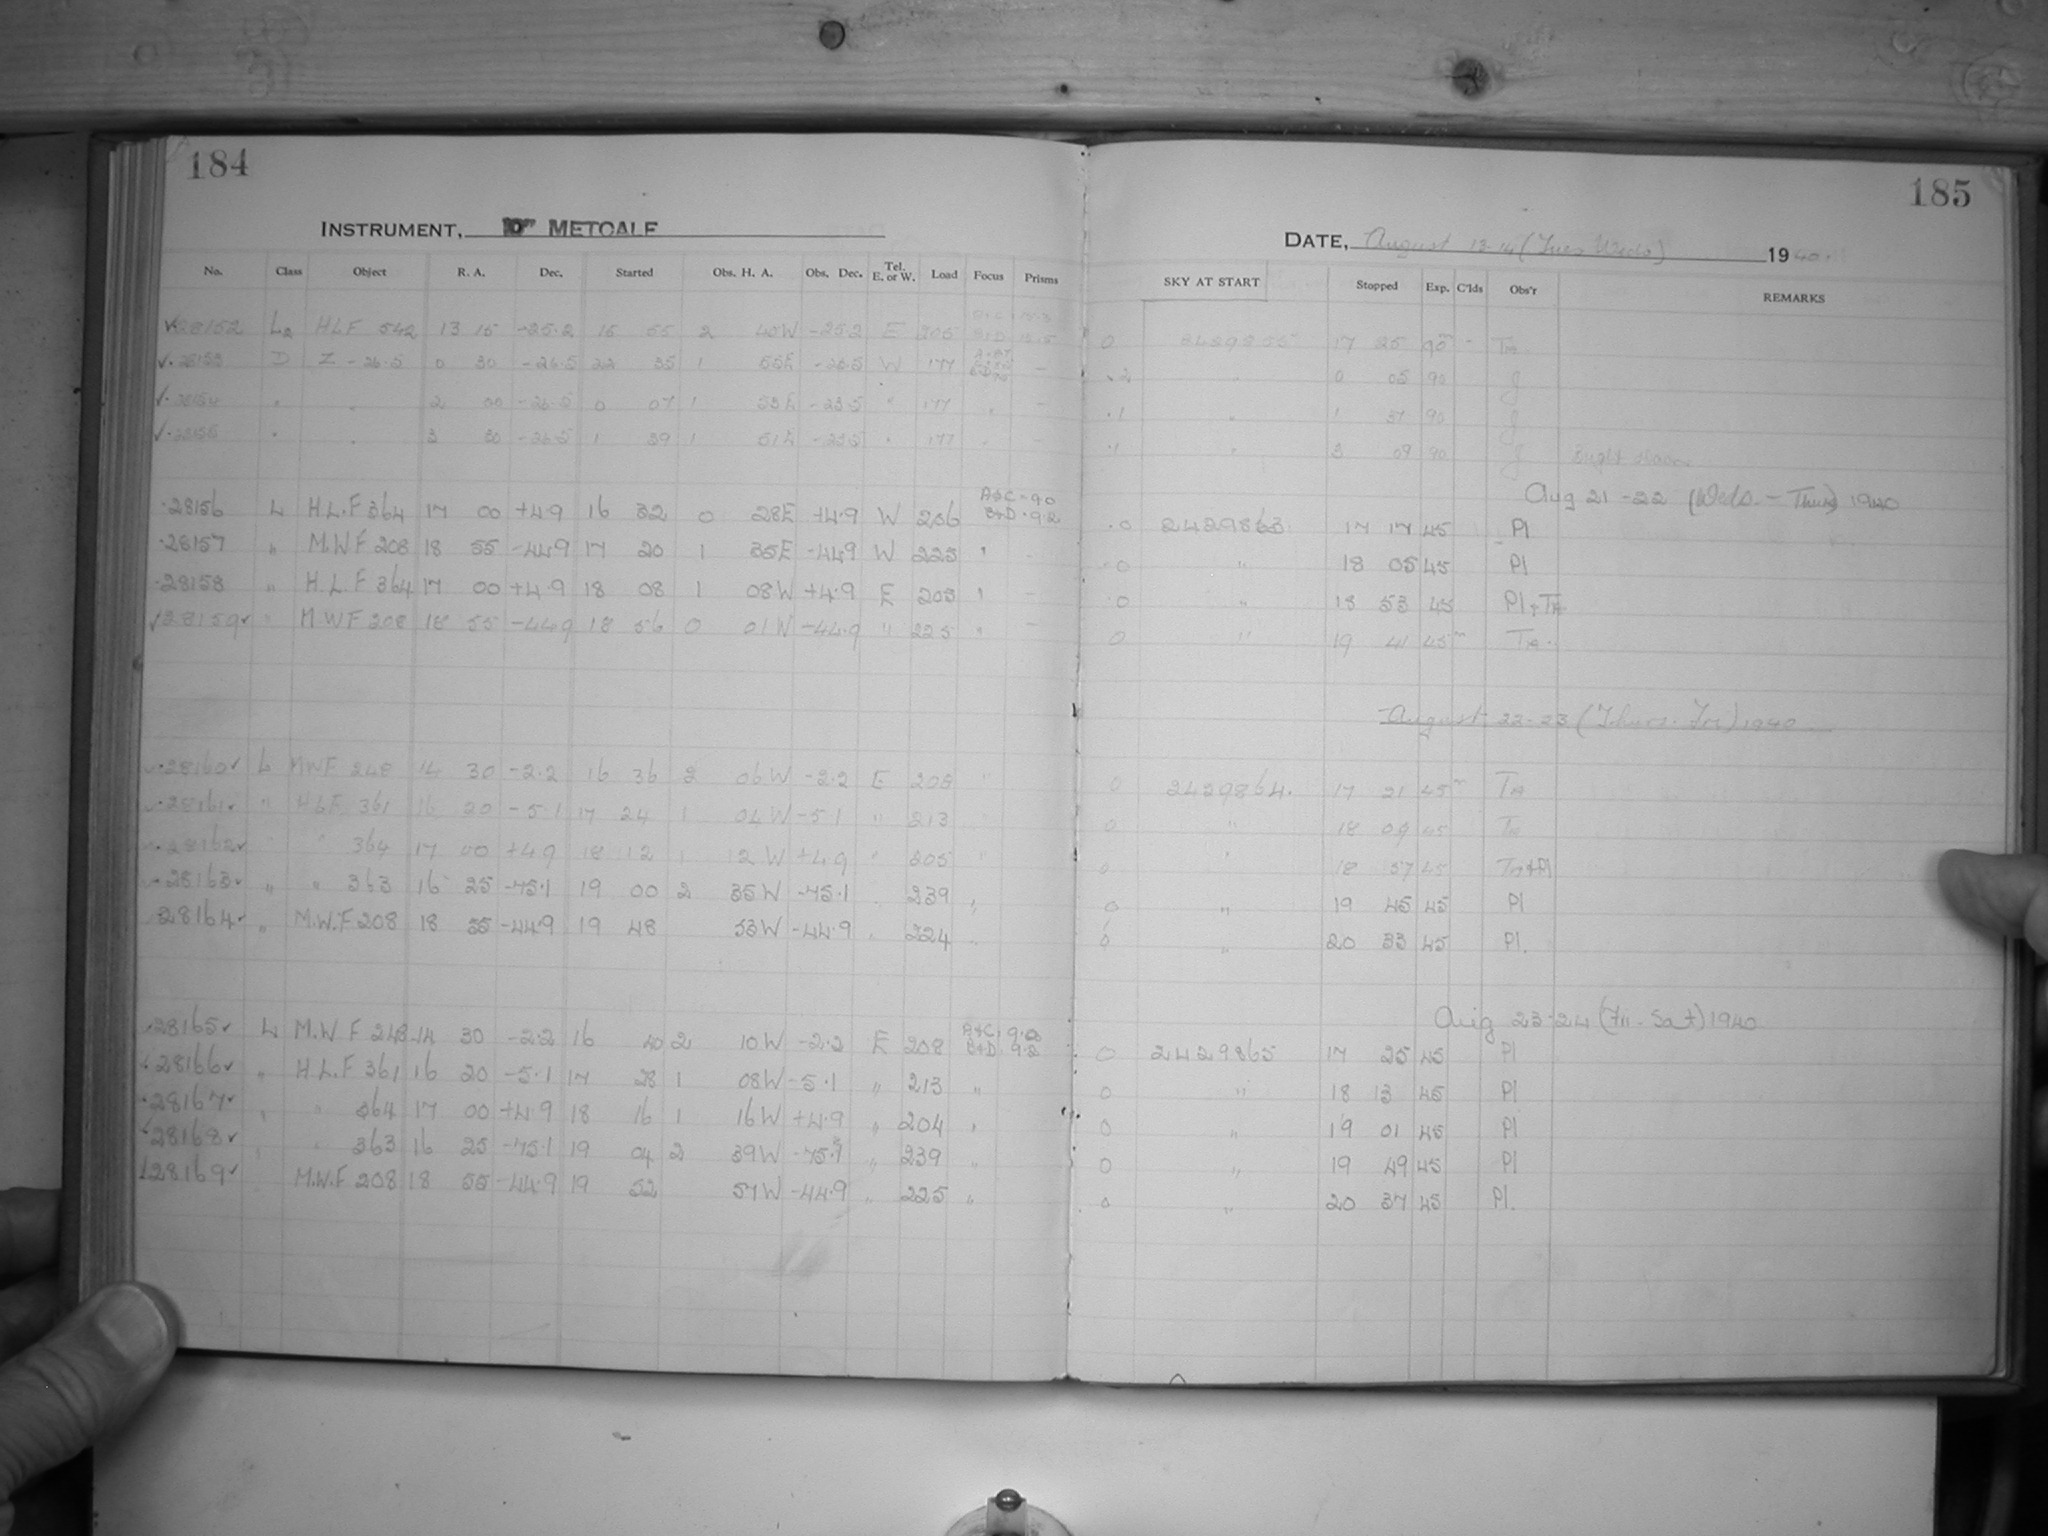 184
INSTRUMENT, 10" METCALF
No. Class Object R. A. Dec. Started Obs. H. A. Obs. Dec. Tel. E. or W. Load Focus Prisms
28152 L2 HLF 542 13 15 -25.2 15 55 2 40W -25.2 E 205
28153 D Z -26.5 0 30 -26.5 22 35 1 55E -26.5 W 177 –
28154 " " 2 00 -26.5 0 07 1 53E -23.5 " 177 " –
28155 " " 3 30 -26.5 1 39 1 51E -23.5 " 177 " –
28156 L H.L.F 364 17 00 +4.9 16 32 0 28E +4.9 W 206 A&C-9.0 B&D-9.2
28157 " M.W.F 208 18 55 -44.9 17 20 1 35E -44.9 W 225 " –
28158 " H.L.F 364 17 00 +4.9 18 08 1 08W +4.9 E 205 " –
28159 " M.W.F 208 18 55 -44.9 18 56 0 01W -44.9 " 225 " –
28160 L M.W.F 248 14 30 -2.2 16 36 2 06W -2.2 E 205 "
28161 " HLF 361 16 20 -5.1 17 24 1 04W -5.1 " 213 "
28162 " " 364 17 00 +4.9 18 12 1 12W +4.9 " 205 "
28163 " " 363 16 25 -75.1 19 00 2 35W -75.1 " 239 "
28164 " M.W.F 208 18 55 -44.9 19 48 53W -44.9 " 224 "
28165 L M.W.F 248 14 30 -2.2 16 40 2 10W -2.2 E 208 A&C 9.0 B&D 9.2
28166 " H.L.F 361 16 20 -5.1 17 28 1 08W -5.1 " 213 "
28167 " " 364 17 00 +4.9 18 16 1 16W +4.9 " 204 "
28168 " " 363 16 25 -75.1 19 04 2 39W -75.1 " 239 "
28169 M.W.F 208 18 55 -44.9 19 52 57W -44.9 " 225 "
185
DATE, August 13-14 (Tues Weds) 1940
SKY AT START Stopped Exp. C'lds Obs'r REMARKS
0 2429855 17 25 90m – TA
.2 " 0 05 90 J
.1 " 1 37 90 J
.1 " 3 09 90 J
Aug 21-22 (Weds. - Thurs) 1940
0 2429863 17 17 45 Pl
0 " 18 05 45 Pl
0 " 18 53 45 Pl+TA
0 " 19 41 45m TA.
August 22-23 (Thurs. Fri) 1940
0 2429864. 17 21 45m TA
0 " 18 09 45 TA
0 " 18 57 45 TA+Pl
0 " 19 45 45 Pl
0 " 20 33 45 Pl.
Aug 23-24 (Fri - Sat) 1940
0 2429865 17 25 45 Pl
0 " 18 13 45 Pl
0 " 19 01 45 Pl
0 " 19 49 45 Pl
0 " 20 37 45 Pl.